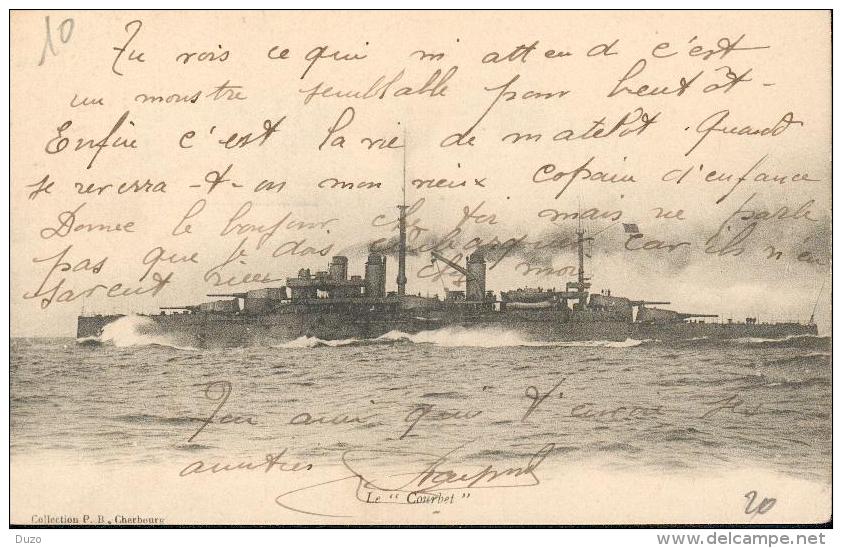 10
Tu vois ce qui m attend c'est
un monstre semblable pour bientôt -
Enfin c'est la vie de matelot. Quand
se reverra - t - on mon vieux copain d'enfance
Donne le bonjour chez toi mais ne parle
pas que je dois embarquer car ils n'en
savent rien chez moi
Ton ami qui t'envoie ses
amitiés
Le "Courbet"
20
Collection P. B., Cherbourg
Duzo
www.delcampe.net